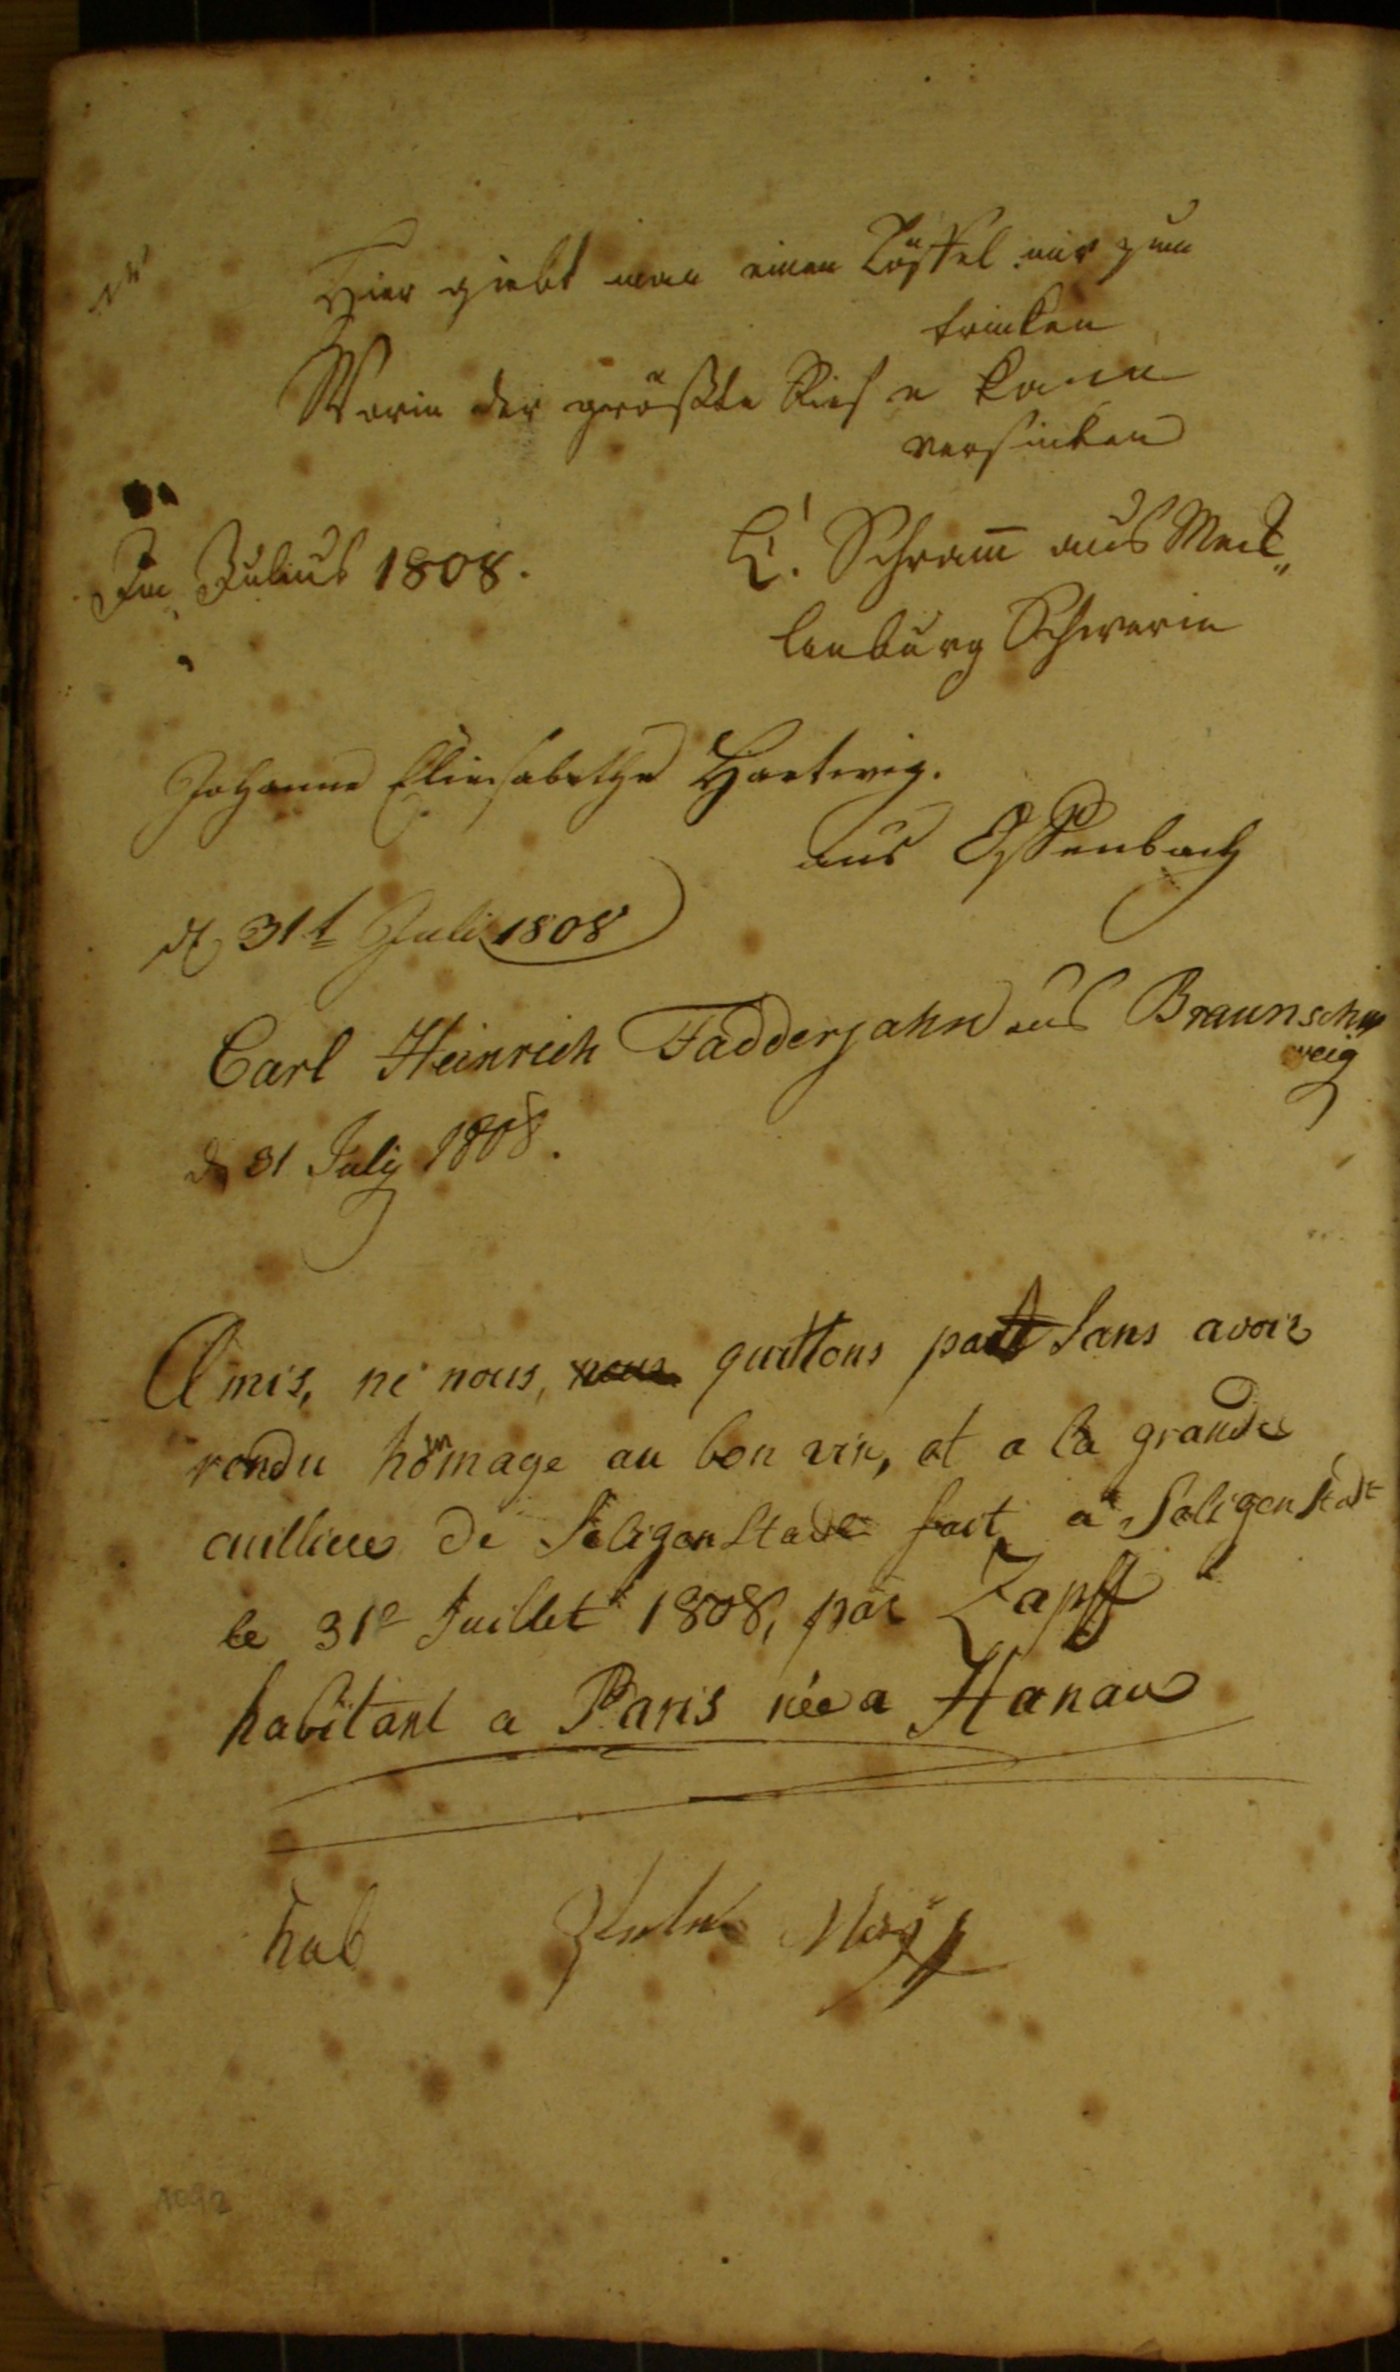 Hier giebt man einen Löffel mir zum
trinken
Worin der größte Riese kann
versinken
Im Julius 1808.
Schram̅ aus Meck„
lenburg Schwerin
Johanne Eliesabethe Hartwig.
aus Offenbach
d 31t Juli 1808
Carl Heinrich Fadderjahn aus Braunschw
weig
d 31 July 1808.
Amis, ne nous, nous quittons pas Sans avoir
rendu hommage au bon vin, et a la grande
cuilliere de Seligenstadt fait a Seligenstadt
le 31e Juillet 1808, par Zapff
habitant a Paris née a Hanau
hab
1092